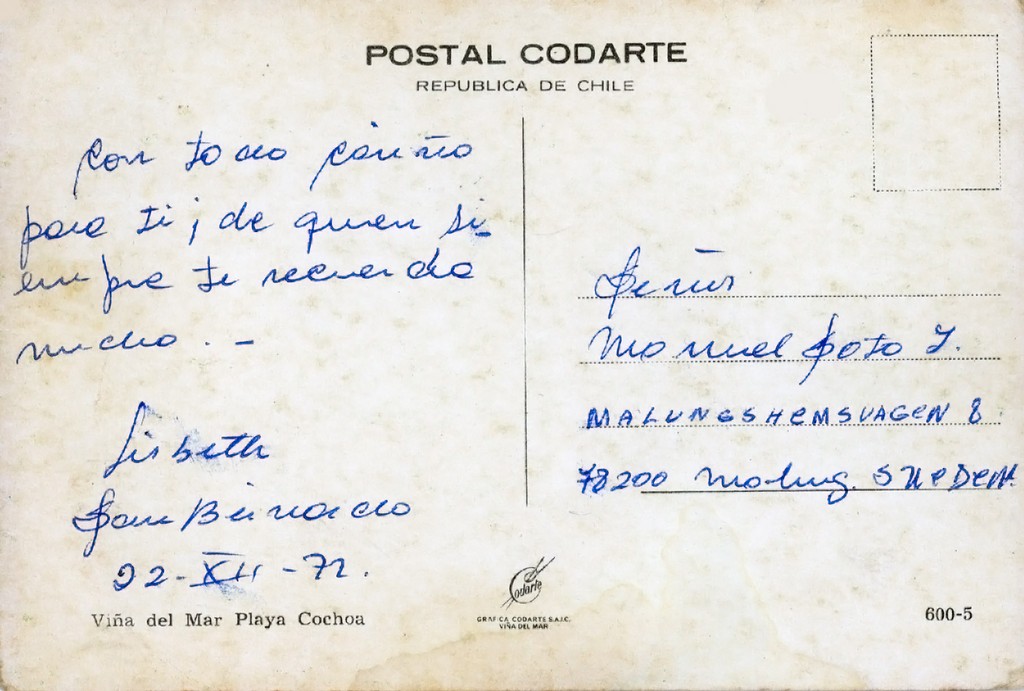 POSTAL CODARTE
REPUBLICA DE CHILE
Con todo cariño
para ti; de quien si-
empre te recuerda
mucho. -
Lisbeth
San Bernardo
22-XII-72.
Señor
Manuel Soto J.
MALUNGSHEMSVAGEN 8
78200 Malung. SUEDEN.
Codarte
GRAFICA CODARTE S.A.I.C.
VIÑA DEL MAR
Viña del Mar Playa Cochoa
600-5